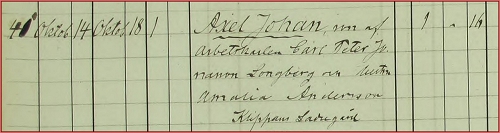 41 Oktob. 14 Oktob. 18 1 Axel Johan, son af 1 " 16
Arbetskarlen Carl Peter Jo-
hanson Longberg och hustru
Amalia Anderson
Klippans Ladugård